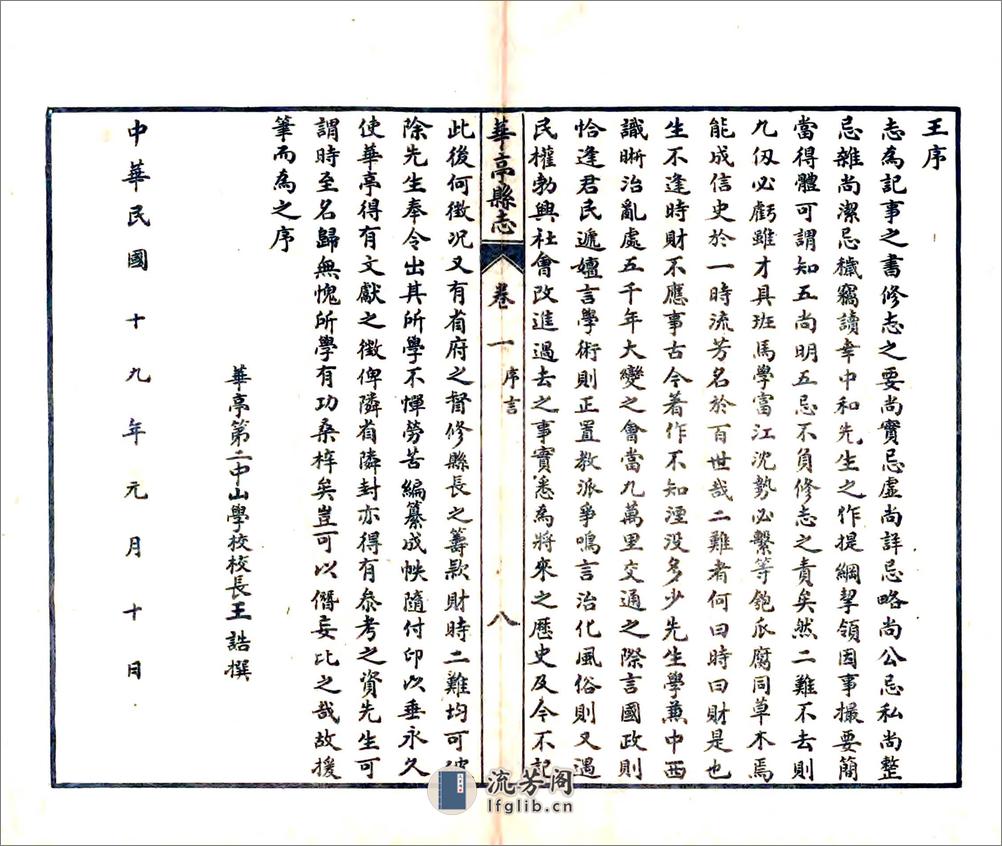 王序
志為記事之書修志之要尚實忌虛尚詳忌略尚公忌私尚整
忌雜尚潔忌穢竊讀幸中和先生之作提綱挈領因事撮要簡
當得體可謂知五尚明五忌不負修志之責矣然二難不去則
九仭必虧雖才具班馬學富江沈勢必繫等匏瓜腐同草木焉
能成信史於一時流芳名於百世哉二難者何曰時曰財是也
生不逢時財不應事古今著作不知湮没多少先生學兼中西
識晰治亂處五千年大變之會當九萬里交通之際言國政則
恰逢君民遞嬗言學術則正置教派爭鳴言治化風俗則又遇
民權勃興社會改進過去之事實悉為將來之歷史及今不記
華亭縣志
卷一
序言
八
此後何徵况又有省府之督修縣長之籌款財時二難均可
除先生奉令出其所學不憚勞苦編纂成帙隨付印以垂永久
使華亭得有文獻之徵俾隣省隣封亦得有叅考之資先生可
謂時至名歸無愧所學有功桑梓矣豈可以僭妄比之哉故援
筆而為之序
華亭第二中山學校校長王誥撰
中華民國十九年元月十日
流芳阁
lfglib.cn